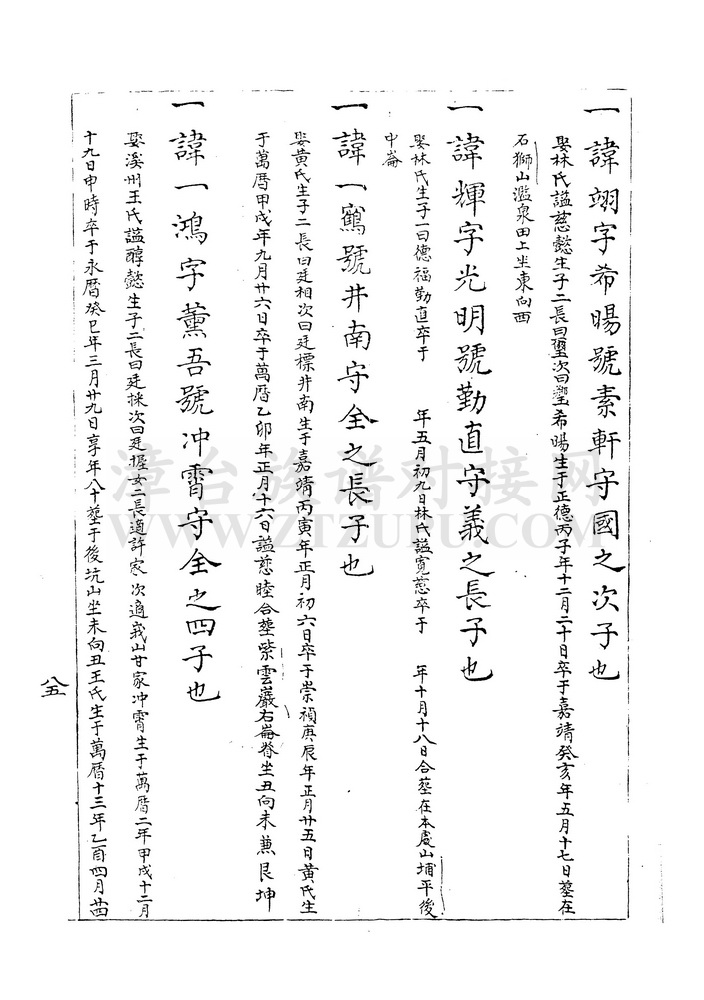 一諱翊字希暘號素軒守國之次子也
娶林氏謚慈懿生子二長曰璽次曰瑩希暘生于正德丙子年十二月二十日卒于嘉靖癸亥年五月十七日塟在
石獅山濫泉田上坐東向西
一諱輝字光明號勤直守義之長子也
娶林氏生子一曰德福勤直卒于 年五月初九日林氏謚寬慈卒于 年十月十八日合塟在本處山埔平後
中崙
一諱一鶴號井南守全之長子也
娶黄氏生子二長曰廷相次曰廷標井南生于嘉靖丙寅年正月初六日卒于崇禎庚辰年正月廿五日黄氏生
于萬暦甲戌年九月廿六日卒于萬暦乙卯年正月十六日謚慈睦合塟紫雲巖右崙脊坐丑向未蒹艮坤
一諱一鴻字薰吾號冲霄守全之四子也
娶溪州王氏謚醇懿生子二長曰廷採次曰廷握女二長適許家次適峩山甘家冲霄生于萬暦二年甲戌十二月
十九日申時卒于永暦癸巳年三月廿九日享年八十塟于後坑山坐未向丑王氏生于萬暦十三年乙酉四月廿四
八五
漳台族谱对接网
WWW.ZTZUPU.COM